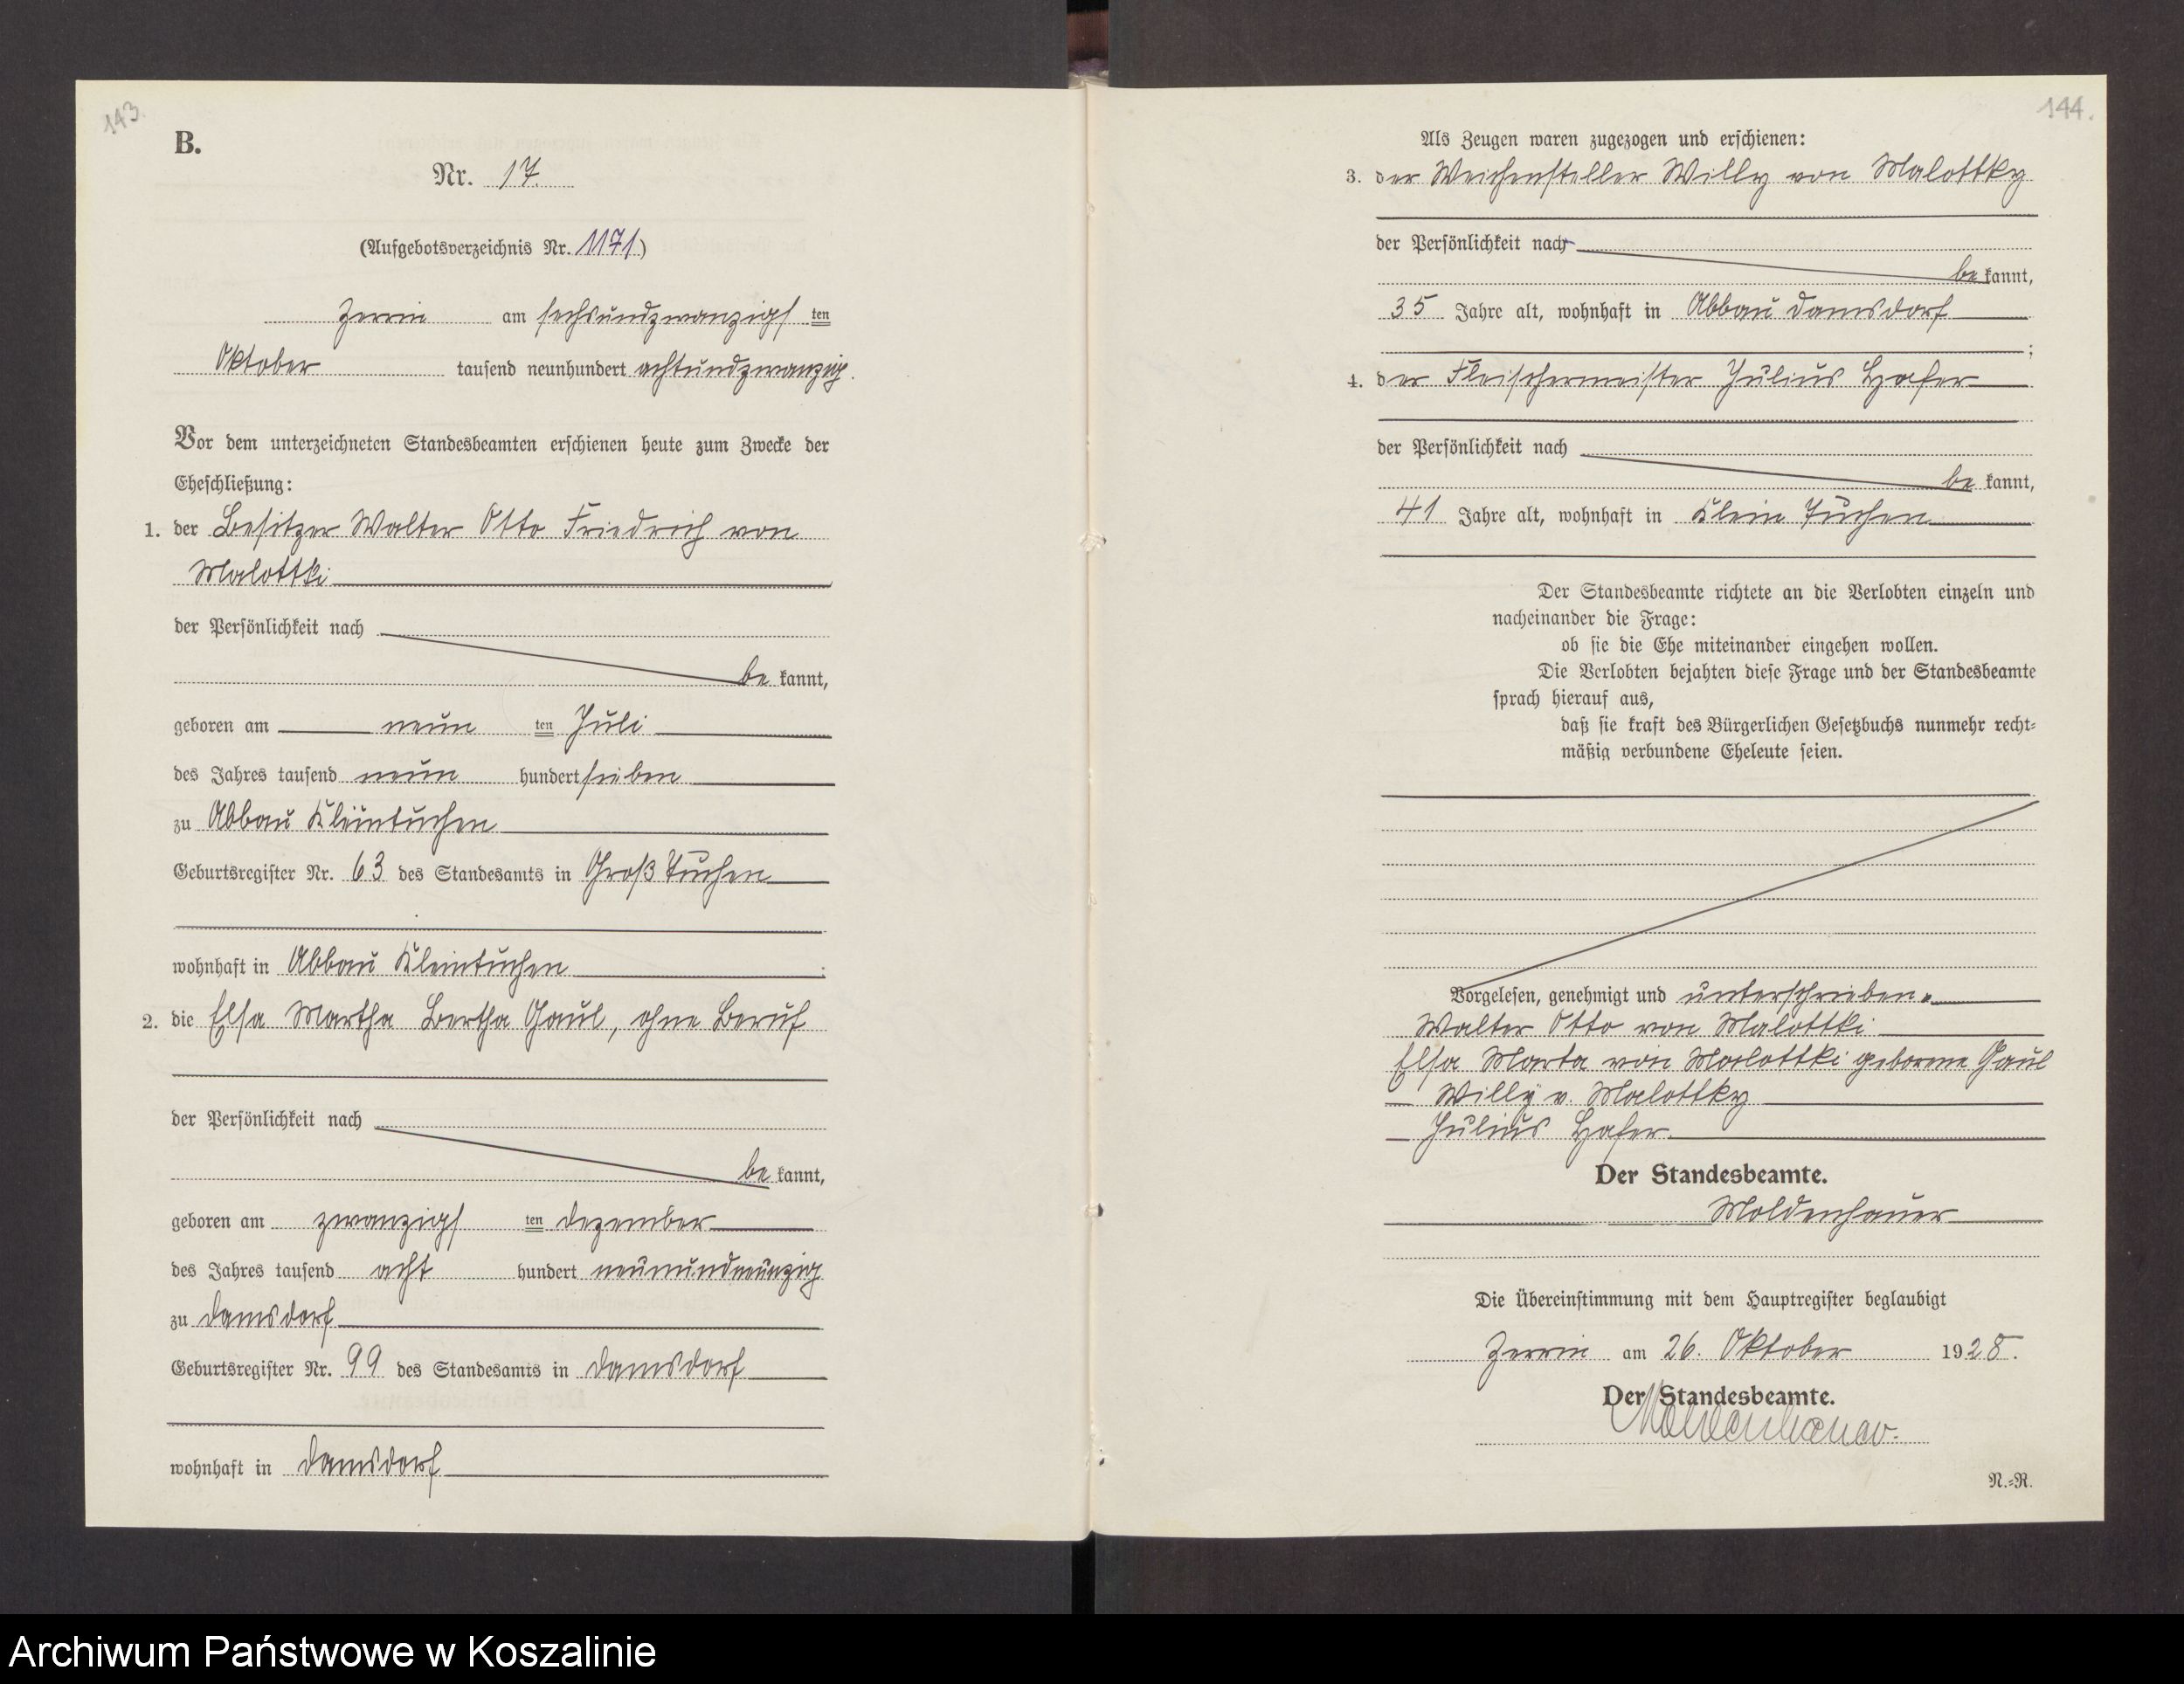 143.
B.
Nr. 17.
(Aufgebotsverzeichnis Nr. 1171)
Zerrin am sechsundzwanzigs ten
Oktober tausend neunhundert achtundzwanzig.
Vor dem unterzeichneten Standesbeamten erschienen heute zum Zwecke der
Eheschließung:
1. der Besitzer Walter Otto Friedrich von
Malottki
der Persönlichkeit nach
be kannt,
geboren am neun ten Juli
des Jahres tausend neun hundert sieben
zu Abbau Kleintuchen
Geburtsregister Nr. 63 des Standesamts in Groß Tuchen
wohnhaft in Abbau Kleintuchen ;
2. die Elsa Martha Bertha Gaul, ohne Beruf
der Persönlichkeit nach
be kannt,
geboren am zwanzigs ten Dezember
des Jahres tausend acht hundert neunundneunzig
zu Damsdorf
Geburtsregister Nr. 99 des Standesamts in Damsdorf
wohnhaft in Damsdorf
144.
Als Zeugen waren zugezogen und erschienen:
3. der Weichensteller Willy von Malottky
der Persönlichkeit nach
be kannt,
35 Jahre alt, wohnhaft in Abbau Damsdorf
;
4. der Fleischermeister Julius Hafer
der Persönlichkeit nach
be kannt,
41 Jahre alt, wohnhaft in Klein Tuchen
Der Standesbeamte richtete an die Verlobten einzeln und
nacheinander die Frage:
ob sie die Ehe miteinander eingehen wollen.
Die Verlobten bejahten diese Frage und der Standesbeamte
sprach hierauf aus,
daß sie kraft des Bürgerlichen Gesetzbuchs nunmehr recht-
mäßig verbundene Eheleute seien.
Vorgelesen, genehmigt und unterschrieben.
Walter Otto von Malottki
Elsa Marta von Malottki geborene Gaul
Willy v. Malottky
Julius Hafer
Der Standesbeamte.
Moldenhauer
Die Übereinstimmung mit dem Hauptregister beglaubigt
Zerrin am 26. Oktober 1928.
Der Standesbeamte.
Moldenhauer.
N.-R.
Archiwum Państwowe w Koszalinie